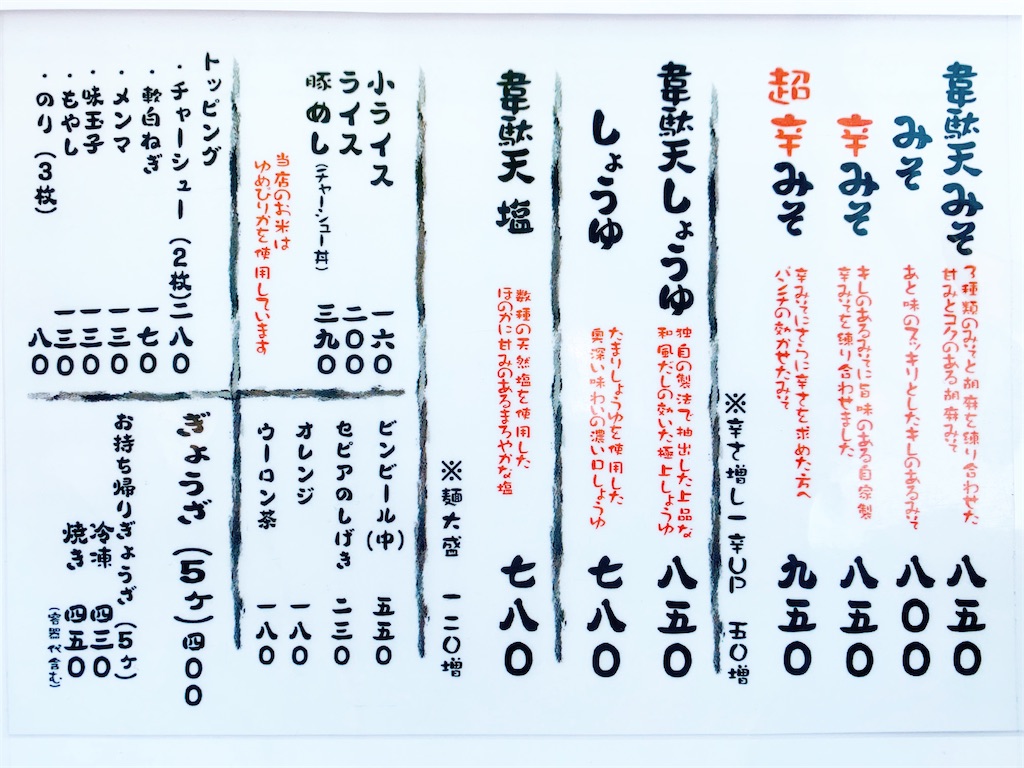 韋駄天みそ
3種類のみそと胡麻を練り合わせた
甘みとコクのある胡麻みそ
八五〇
みそ
あと味のスッキリとしたキレのあるみそ
八〇〇
辛みそ
キレのあるみそに旨味のある自家製
辛みそを練り合わせました
八五〇
超辛みそ
辛みそにさらに辛さを求めた方へ
パンチの効かせたみそ
九五〇
※辛さ増し一辛UP 五〇増
韋駄天しょうゆ
独自の製法で抽出した上品な
和風だしの効いた極上しょうゆ
八五〇
しょうゆ
たまりしょうゆを使用した
奥深い味わいの濃い口しょうゆ
七八〇
韋駄天塩
数種の天然塩を使用した
ほのかに甘みのあるまろやかな塩
七八〇
※麺大盛 一二〇増
小ライス 一六〇
ライス 二〇〇
豚めし(チャーシュー丼) 三九〇
当店のお米は
ゆめぴりかを使用しています
ビンビール(中) 五五〇
セピアのしげき 二三〇
オレンジ 一八〇
ウーロン茶 一八〇
トッピング
・チャーシュー(2枚)二八〇
・軟白ねぎ 一七〇
・メンマ 一三〇
・味玉子 一三〇
・もやし 一三〇
・のり(3枚) 八〇
ぎょうざ(5ヶ)四〇〇
お持ち帰りぎょうざ(5ヶ)
冷凍 四三〇
焼き 四五〇
(容器代含む)